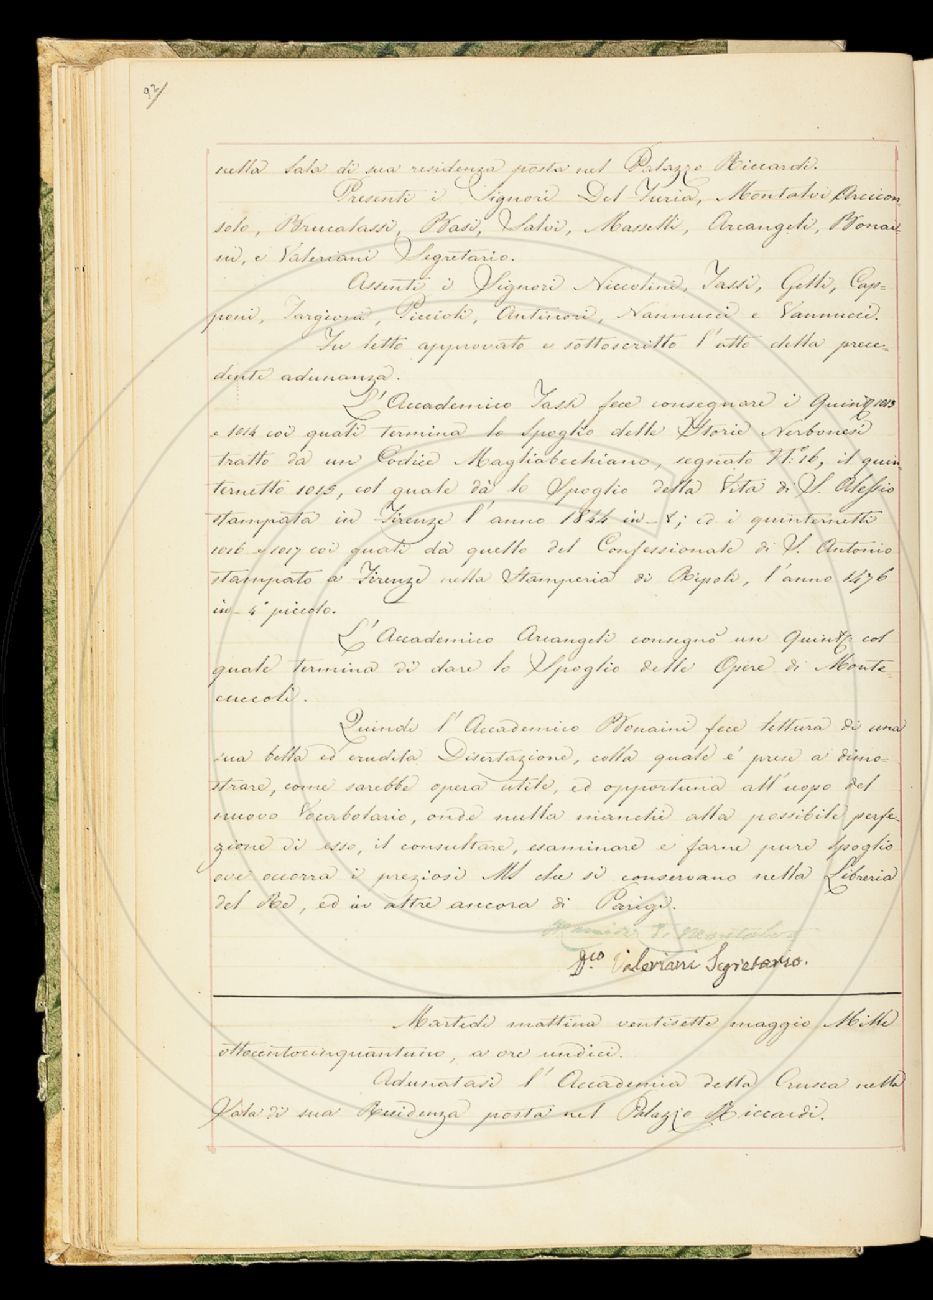 92/
nella Sala di sua residenza posta nel Palazzo Riccardi.
Presenti i Signori Del Furia, Montalvi Arcicon-
solo, Brucalassi, Basi, Salvi, Masselli, Arcangeli, Bonai
ni, e Valeriani Segretario.
Assenti i Signori Niccolini, Tassi, Gelli, Cap=
poni, Targioni, Piccioli, Antinori, Nannucci e Vannucci.
Fu letto approvato e sottoscritto l'atto della prece=
dente adunanza.
L'Accademico Tassi fece consegnare i Quint.i 1013
e 1014 coi quali termina lo spoglio delle Storie Nerbonesi
tratto da un Codice Magliabechiano, segnato N.° 16, il quin
ternetto 1015, col quale dà lo Spoglio della Vita di S. Alessio
stampata in Firenze l'anno 1844 in-8; ed i quinternetti
1016 e 1017 coi quali dà quello del Confessionale di S. Antonio
stampato a Firenze nella Stamperia di Ripoli, l'anno 1476
in-4° piccolo.
L'Accademico Arcangeli consegnò un Quint.° col
quale termina di dare lo Spoglio delle Opere di Monte=
cuccoli.
Quindi l'Accademico Bonaini fece lettura di una
sua bella ed erudita Disertazione, colla quale è prese a dimo=
strare, come sarebbe opera utile, ed opportuna all'uopo del
nuovo Vocabolario, onde nulla manchi alla possibile perfe-
zione di esso, il consultare, esaminare e farne pure spoglio
ove occorra i preziosi MS che si conservano nella Libreria
del Re, ed in altre ancora di Parigi.
Montalvi
D.co Valeriani Segretario.
Martedì mattina ventisette maggio Mille
ottocentocinquantuno, a ore undici.
Adunatasi l'Accademia della Crusca nella
Sala di sua Residenza posta nel Palazzo Riccardi.